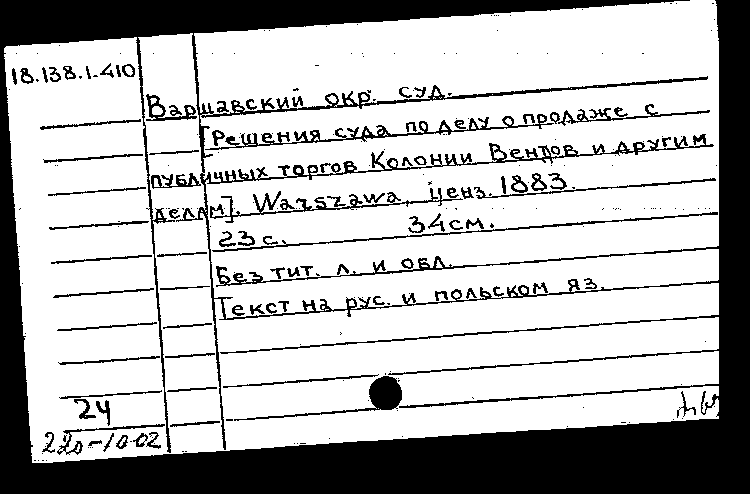 18.138.1-410
Варшавский окр. суд.
[Решения суда по делу о продаже с
публичных торгов Колонии Вендов и другим
делам]. Warszawa, ценз. 1883.
23 с. 34 см.
Без тит. л. и обл.
Текст на рус. и польском яз.
24
220-10-02